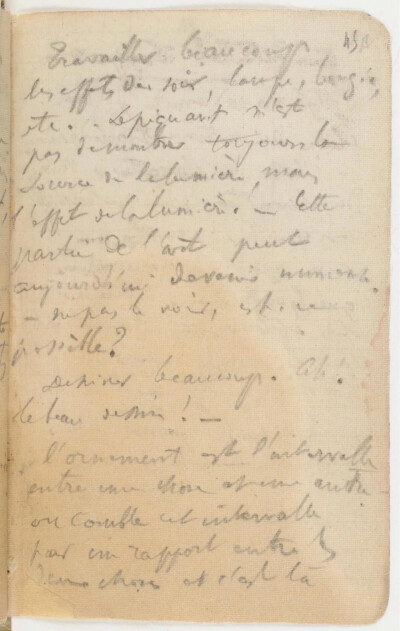 45
Travailler beaucoup
les effets du soir, lampe, bougie,
etc. . Le piquant n'est
pas de montrer toujours la
source de la lumière, mais
l'effet de la lumière. — Cette
partie de l'art peut
aujourd'hui devenir immense.
— ne pas le voir, est-ce
possible?
Dessiner beaucoup. Ah!
le beau dessin! —
l'ornement est l'intervalle
entre une chose et une autre
on comble cet intervalle
par un rapport entre les
deux choses et c'est là